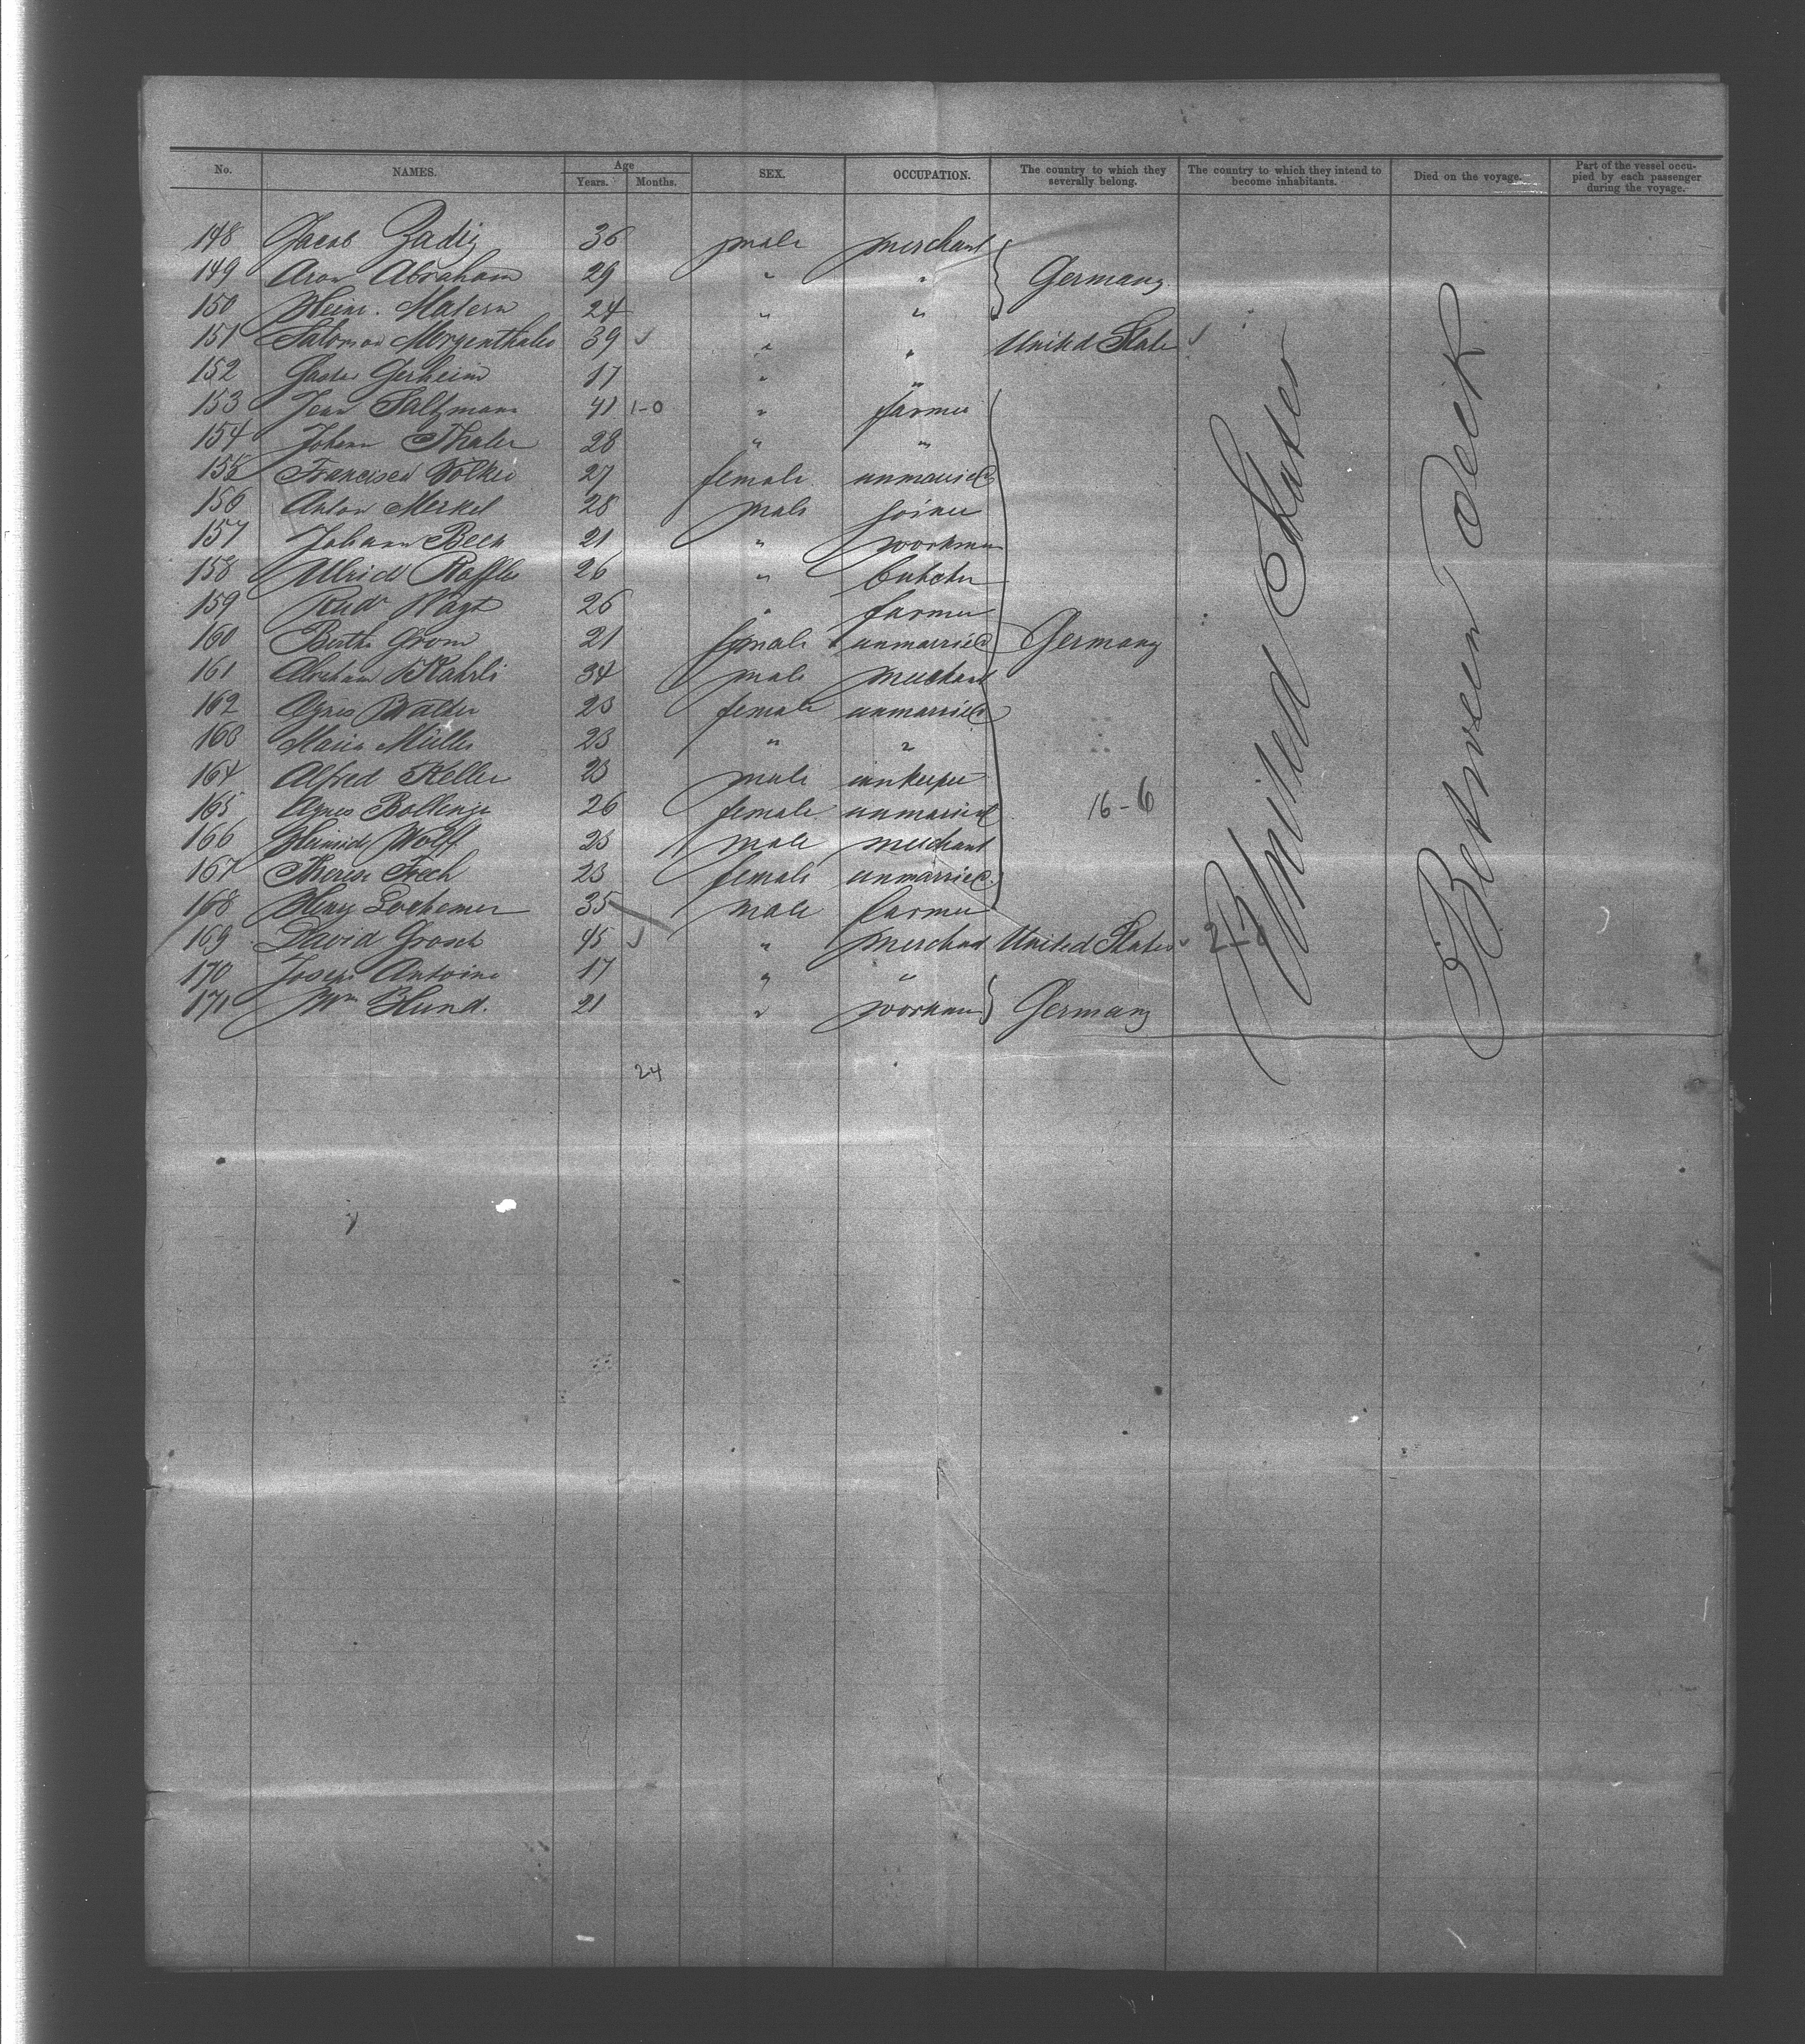 No. NAMES. Age Years. Months. SEX. OCCUPATION. The country to which they severally belong. The country to which they intend to become inhabitants. Died on the voyage. Part of the vessel occupied by each passenger during the voyage.
148 Jacob Zadig 36 male merchant
149 Aron Abraham 29 " " Germany
150 Heinr. Matern 24 " "
151 Salomon Morgenthaler 39 " " United States
152 Gerheim 17 " "
153 Jean Saltzmann 41 1-0 " farmer
154 Johann Thaler 28 " "
155 Francisca Volker 27 female unmarried
156 Anton Merkel 28 male joiner
157 Johann Beck 21 " workman
158 Ulrich Raffler 26 " butcher
159 Rud. 26 " farmer
160 Bertha Grom 21 female unmarried Germany
161 Abraham 34 male merchant
162 Agnes Walder 23 female unmarried
163 Maria Müller 23 " "
164 Alfred Keller 23 male innkeeper
165 Agnes Bollenge 26 female unmarried 16-6
166 Heinrich Wolff 23 male merchant
167 Therese Frech 23 female unmarried
168 Henry Lochemer 35 male farmer
169 David Grosch 45 " merchant United States 2-2
170 Joseph Antoine 17 " "
171 Wm Hund. 21 " workman Germany
24
United States
Between Deck